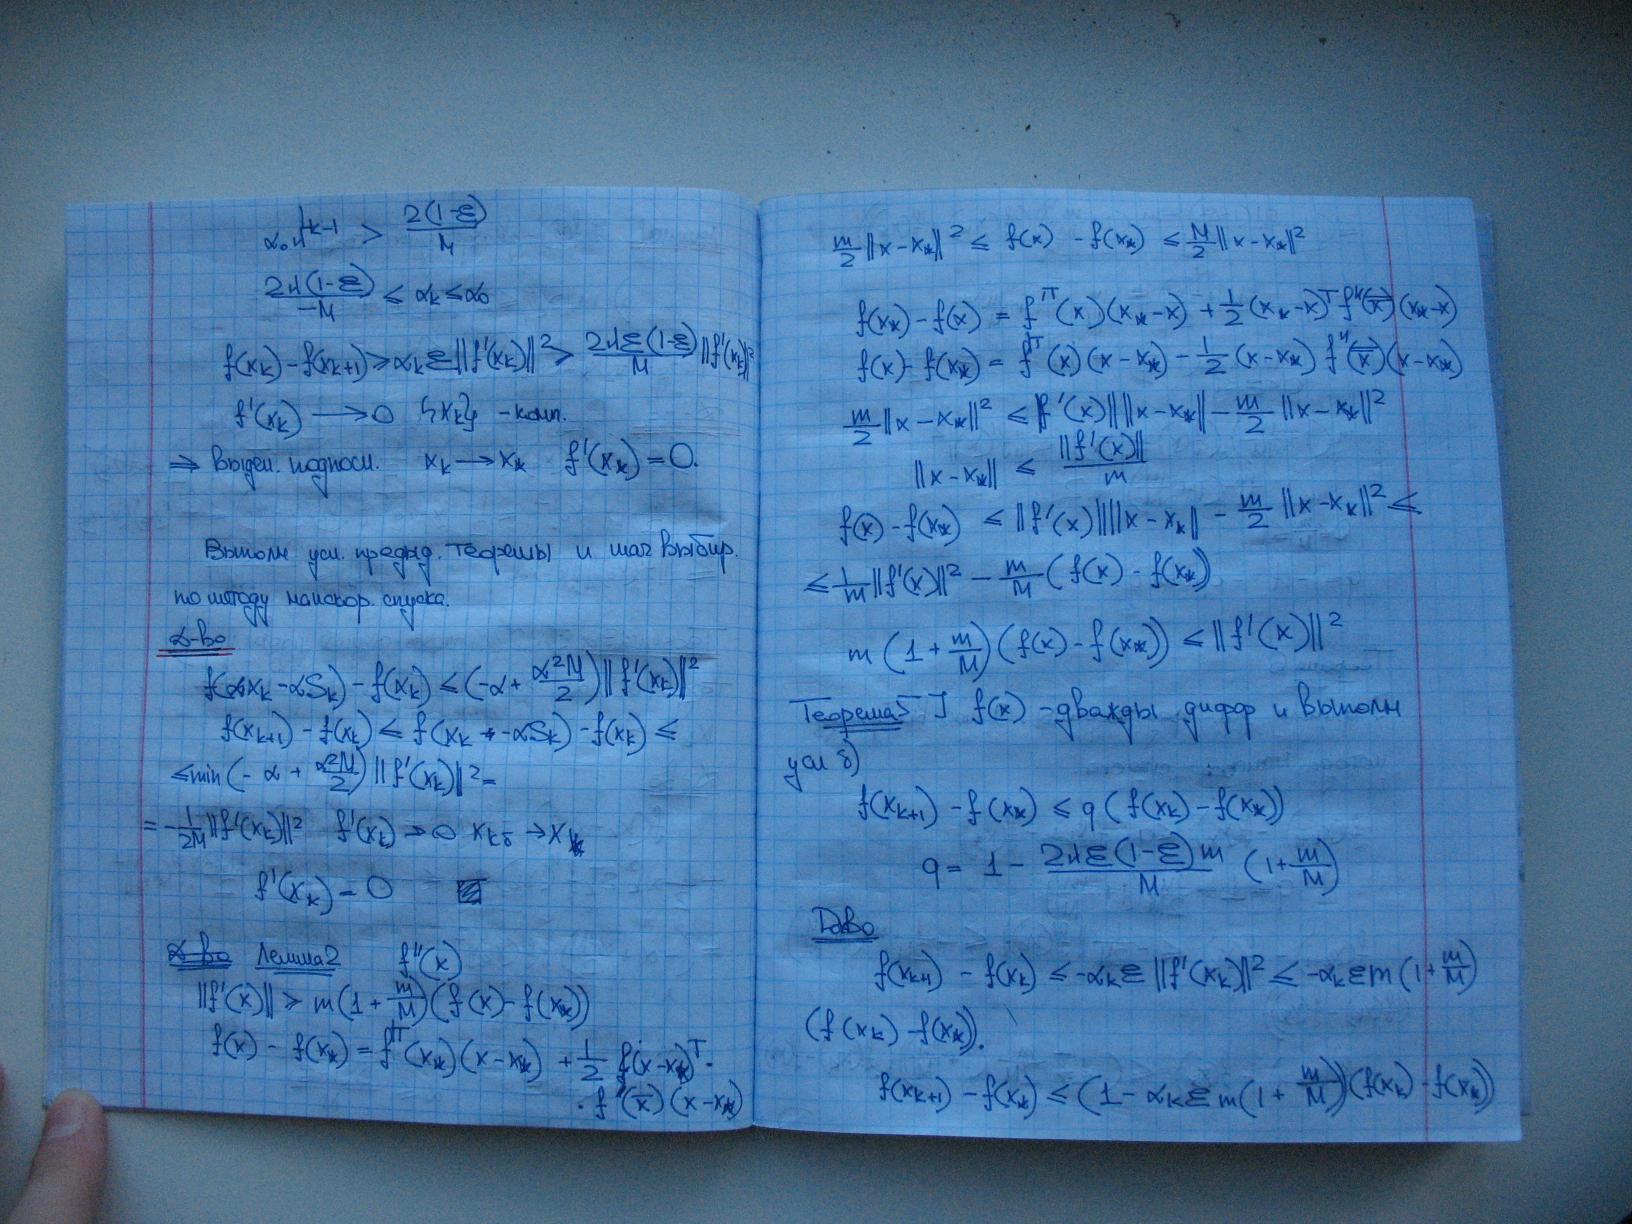 α₀λ^{k-1} > 2(1-ε)/M
2λ(1-ε)/M ≤ αₖ ≤ α₀
f(xₖ) - f(xₖ₊₁) ≥ αₖε||f'(xₖ)||² > 2λε(1-ε)/M ||f'(xₖ)||²
f'(xₖ) → 0 {xₖ} - комп.
⇒ Выдел. подпосл. xₖ → x* f'(x*) = 0.
Выполн усл. предыд. теоремы и шаг выбир.
по методу наискор. спуска.
Д-во
f(xₖ - αSₖ) - f(xₖ) ≤ (-α + α²M/2)||f'(xₖ)||²
f(xₖ₊₁) - f(xₖ) ≤ f(xₖ - αSₖ) - f(xₖ) ≤
≤ min(-α + α²M/2)||f'(xₖ)||² =
= -1/2M ||f'(xₖ)||² f'(xₖ) → 0 → x*
f'(xₖ) = 0
Д-во Лемма 2 f''(x)
||f'(x)|| ≥ m(1 + m/M)(f(x) - f(x*))
f(x) - f(x*) = f'ᵀ(x*)(x - x*) + 1/2 (x - x*)ᵀ ·
· f''(x̄)(x - x*)
m/2 ||x - x*||² ≤ f(x) - f(x*) ≤ M/2 ||x - x*||²
f(x*) - f(x) = f'ᵀ(x)(x* - x) + 1/2 (x* - x)ᵀ f''(x̿)(x* - x)
f(x) - f(x*) = f'ᵀ(x)(x - x*) - 1/2 (x - x*) f''(x̿)(x - x*)
m/2 ||x - x*||² ≤ ||f'(x)|| ||x - x*|| - m/2 ||x - x*||²
||x - x*|| ≤ ||f'(x)||/m
f(x) - f(x*) ≤ ||f'(x)|| ||x - x*|| - m/2 ||x - x*||² ≤
≤ 1/m ||f'(x)||² - m/M (f(x) - f(x*))
m(1 + m/M)(f(x) - f(x*)) ≤ ||f'(x)||²
Теорема 5 ] f(x) - дважды дифф и выполн
усл б)
f(xₖ₊₁) - f(x*) ≤ q(f(xₖ) - f(x*))
q = 1 - 2λε(1-ε)m/M (1 + m/M)
Д-во
f(xₖ₊₁) - f(xₖ) ≤ -αₖε||f'(xₖ)||² ≤ -αₖεm(1 + m/M)
(f(xₖ) - f(x*)).
f(xₖ₊₁) - f(x*) ≤ (1 - αₖεm(1 + m/M))(f(xₖ) - f(x*))